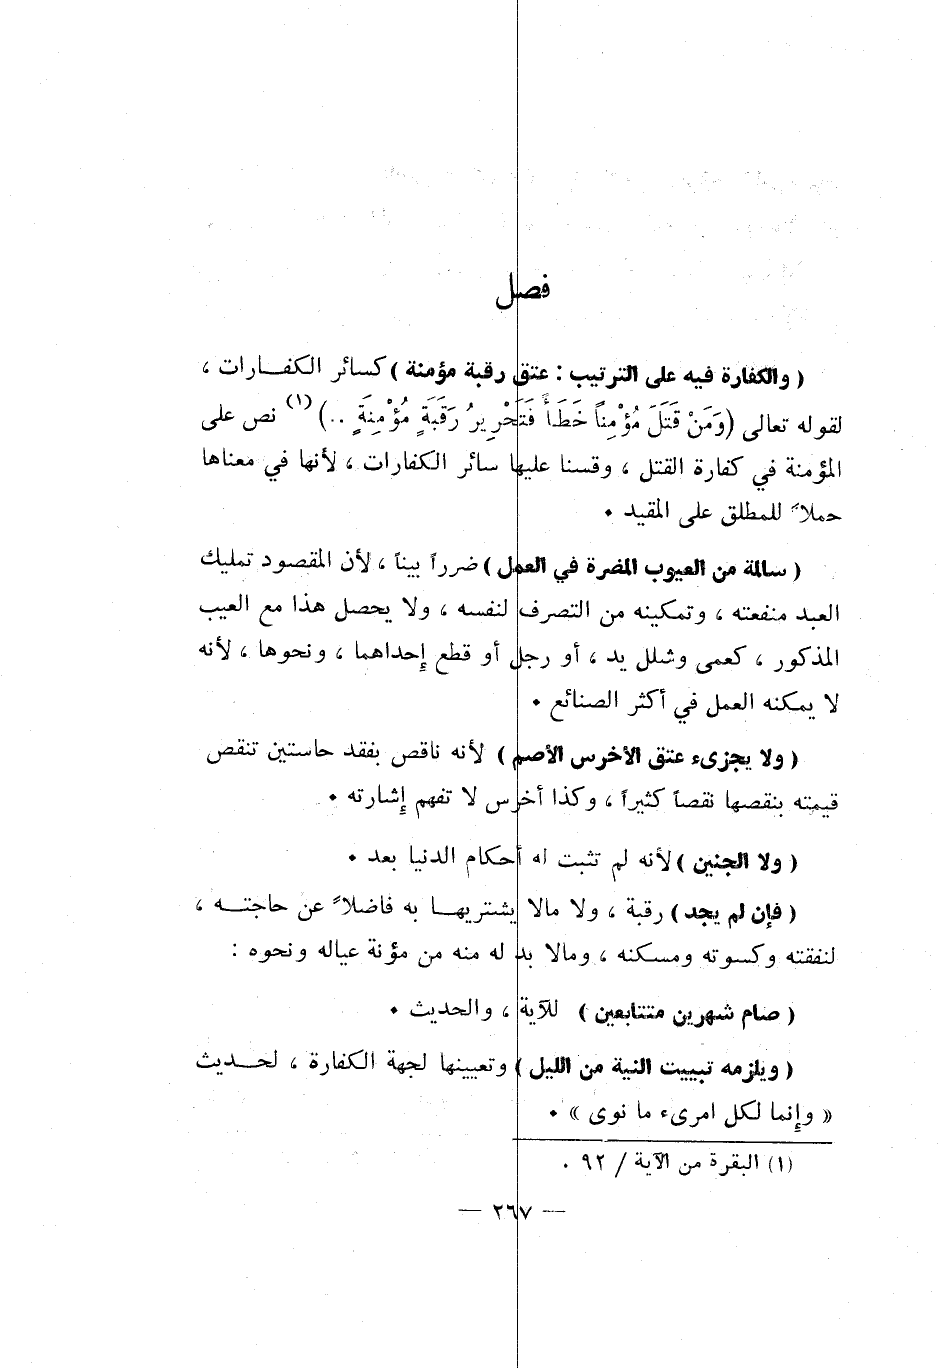 فصل
( والكفارة فيه على الترتيب : عتق رقبة مؤمنة ) كسائر الكفــارات ،
لقوله تعالى (وَمَنْ قَتَلَ مُؤْمِناً خَطَأً فَتَحْرِيرُ رَقَبَةٍ مُؤْمِنَةٍ ..) (١) نص على
المؤمنة في كفارة القتل ، وقسنا عليها سائر الكفارات ، لأنها في معناها
حملاً للمطلق على المقيد .
( سالمة من العيوب المضرة في العمل ) ضرراً بيناً ، لأن المقصود تمليك
العبد منفعته ، وتمكينه من التصرف لنفسه ، ولا يحصل هذا مع العيب
المذكور ، كعمى وشلل يد ، أو رجل أو قطع إحداهما ، ونحوها ، لأنه
لا يمكنه العمل في أكثر الصنائع .
( ولا يجزىء عتق الأخرس الأصم ) لأنه ناقص بفقد حاستين تنقص
قيمته بنقصها نقصاً كثيراً ، وكذا أخرس لا تفهم إشارته .
( ولا الجنين ) لأنه لم تثبت له أحكام الدنيا بعد .
( فإن لم يجد ) رقبة ، ولا مالا يشتريهــا به فاضلاً عن حاجتــه ،
لنفقته وكسوته ومسكنه ، ومالا بد له منه من مؤنة عياله ونحوه :
( صام شهرين متتابعين ) للآية ، والحديث .
( ويلزمه تبييت النية من الليل ) وتعيينها لجهة الكفارة ، لحــديث
« وإنما لكل امرىء ما نوى » .
(١) البقرة من الآية / ٩٢ .
— ٢٦٧ —